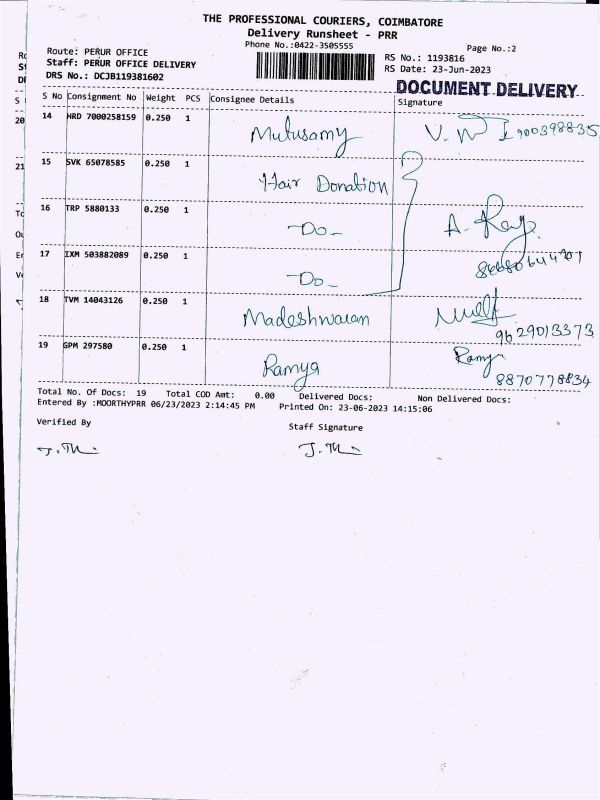 THE PROFESSIONAL COURIERS, COIMBATORE
Delivery Runsheet - PRR
Phone No.:0422-3505555
Page No.:2
Route: PERUR OFFICE
RS No.: 1193816
Staff: PERUR OFFICE DELIVERY
RS Date: 23-Jun-2023
DRS No.: DCJB119381602
DOCUMENT DELIVERY
S No Consignment No Weight PCS Consignee Details Signature
14 HRD 7000258159 0.250 1 Mutusamy
15 SVK 65078585 0.250 1 Hair Donation
16 TRP 5880133 0.250 1 -Do-
17 IXM 503882089 0.250 1 -Do-
18 TVM 14043126 0.250 1 Madeshwaran 9629013373
19 GPM 297580 0.250 1 Ramya Ramya 8870778834
Total No. Of Docs: 19 Total COD Amt: 0.00 Delivered Docs: Non Delivered Docs:
Entered By :MOORTHYPRR 06/23/2023 2:14:45 PM Printed On: 23-06-2023 14:15:06
Verified By
Staff Signature